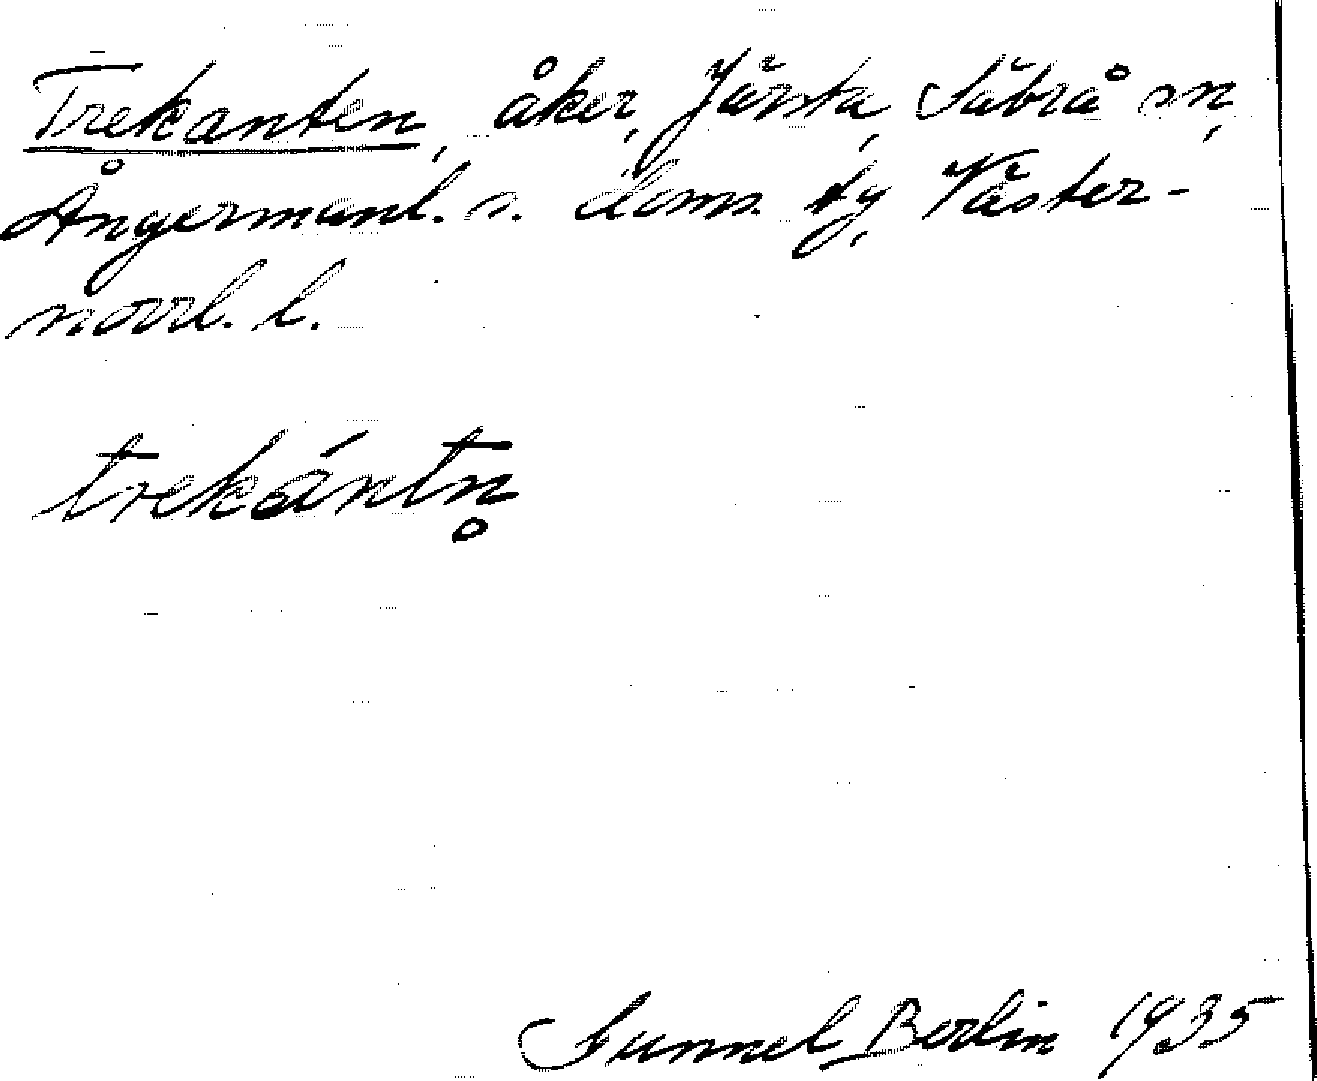 Trekanten, åker, Järsta, Säbrå sn,
Ångermanl. s. doms. tg, Väster-
norrl. l.
trekántn̥
Gunnel Berlin 1935